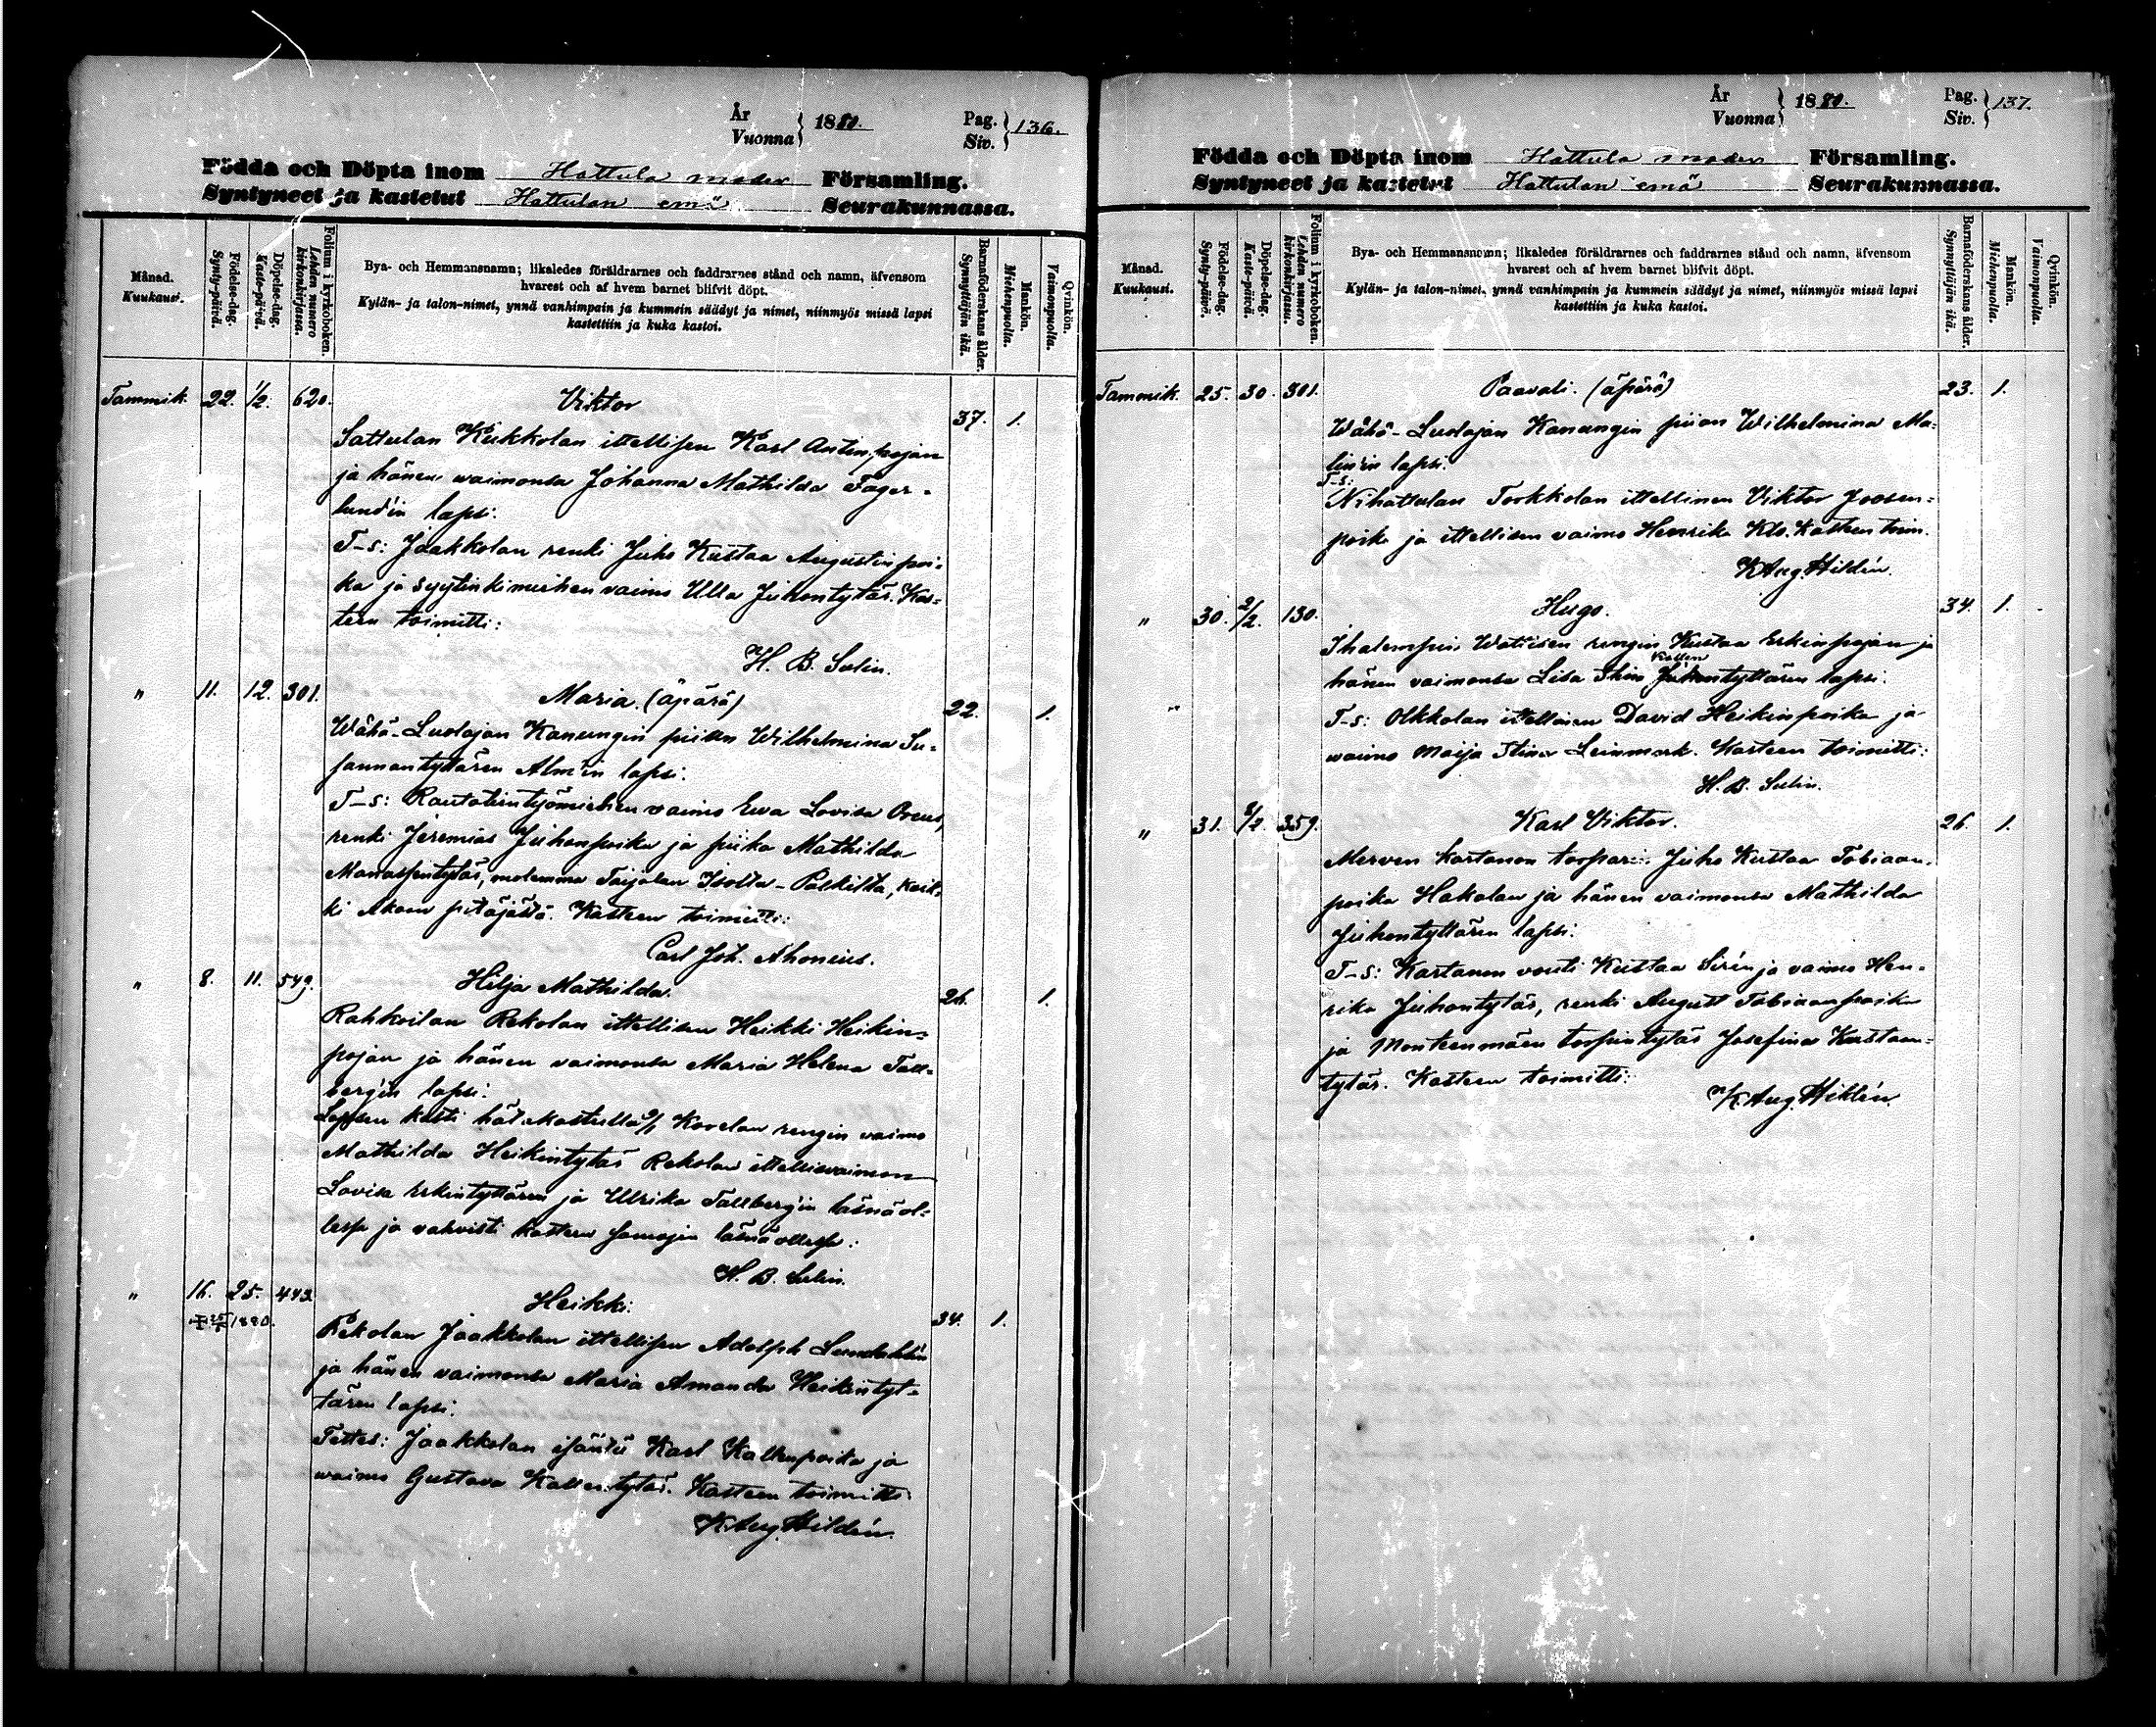 År
Vuonna
1880.
Pag.
Siv.
136.
Födda och Döpta inom Hattula moder Församling.
Syntyneet ja kastetut Hattulan emä Seurakunnassa.
Månad.
Kuukausi.
Födelse-dag.
Synty-päivä.
Döpelse-dag.
Kaste-päivä.
Folium i kyrkoboken.
Lehden numero kirkonkirjassa.
Bya- och Hemmansnamn; likaledes föräldrarnes och faddrarnes stånd och namn, äfvensom
hvarest och af hvem barnet blifvit döpt.
Kylän- ja talon-nimet, ynnä vanhimpain ja kummein säädyt ja nimet, niinmyös missä lapsi
kastettiin ja kuka kastoi.
Barnaföderskans ålder.
Synnyttöjän ikä.
Mankön.
Miehenpuolta.
Qvinkön.
Vaimonpuolta.
Tammik. 22. 1/2. 620. Viktor 37. 1.
Sattulan Kukkolan ittellisen Karl Antinpojan
ja hänen waimonsa Johanna Mathilda Fager-
lund'in lapsi.
T-s: Jaakkolan renki Juho Kustaa Augustinpoi-
ka ja syytinkimiehen vaimo Ulla Juhontytär. Kas-
teen toimitti:
H. B. Sulin.
" 11. 12. 301. Maria. (äpärä) 22. 1.
Wähä-Luolajan Kanungin piian Wilhelmina Su-
sannantyttären Alm'in lapsi.
T-s: Rautatientyömiehen vaimo Ewa Lovisa
renki Jeremias Juhonpoika ja piika Mathilda
Manassentytär, molemma Taijalan Isolta-Paskilta, kaik-
ki Akaan pitäjästä. Kasteen toimitti:
Carl Joh. Ahonius.
" 8. 11. 549. Hilja Mathilda. 26. 1.
Rahkoilan Rekolan ittellisen Heikki Heikin-
pojan ja hänen vaimonsa Maria Helena Tall-
berg'in lapsi.
Lapsen kasti hätäkasteella 9/1 Kovelan rengin vaimo
Mathilda Heikintytär Rekolan ittellisvaimon
Lovisa Erkintyttären ja Ulrika Tallberg'in läsnäol-
lessa ja vahvisti kasteen samojen läsnäollessa:
H. B. Sulin.
" 16. 25. 443. Heikki. 34. 1.
1880.
Pekolan Jaakkolan ittellisen Adolph
ja hänen vaimonsa Maria Amanda Heikintyt-
tären lapsi.
Testes: Jaakkolan isäntä Karl Kallenpoika ja
waimo Gustava Kallentytär. Kasteen toimitti
K. Aug. Hildén.
År
Vuonna
1880.
Pag.
Siv.
137.
Födda och Döpta inom Hattula moder Församling.
Syntyneet ja kastetut Hattulan emä Seurakunnassa.
Månad.
Kuukausi.
Födelse-dag.
Synty-päivä.
Döpelse-dag.
Kaste-päivä.
Folium i kyrkoboken.
Lehden numero kirkonkirjassa.
Bya- och Hemmansnamn; likaledes föräldrarnes och faddrarnes stånd och namn, äfvensom
hvarest och af hvem barnet blifvit döpt.
Kylän- ja talon-nimet, ynnä vanhimpain ja kummein säädyt ja nimet, niinmyös missä lapsi
kastettiin ja kuka kastoi.
Barnaföderskans ålder.
Synnyttöjän ikä.
Mankön.
Miehenpuolta.
Qvinkön.
Vaimonpuolta.
Tammik. 25. 30. 301. Paavali. (äpärä) 23. 1.
Wähä-Luolajan Kanungin piian Wilhelmina Ma-
lin'in lapsi.
T-s:
Nihattulan Torkkolan ittellinen Viktor Joosen-
poika ja ittellisen vaimo Henrika Kasteen toim.
K. Aug. Hildén.
" 30. 2/2. 130. Hugo. 34. 1.
Ihalempin rengin Kustaa Erkinpojan ja
Kallen
hänen vaimonsa Lisa Stina Juhontyttären lapsi.
" T-s: Olkkolan ittellinen David Heikinpoika ja
waimo Maija Stina Leinmark. Kasteen toimitti:
H. B. Sulin.
" 31. 8/2. 359. Karl Viktor. 26. 1.
Merven kartanon torpari Juho Kustaa Tobiaan-
poika Hakalan ja hänen vaimonsa Mathilda
Juhontyttären lapsi.
T-s: Kartanon vouti Kustaa Sirén ja vaimo Hen-
rika Juhontytär, renki August Tobiaanpoika
ja Monteenmäen torpintytär Josefina Kustaan-
tytär. Kasteen toimitti:
K. Aug. Hildén.